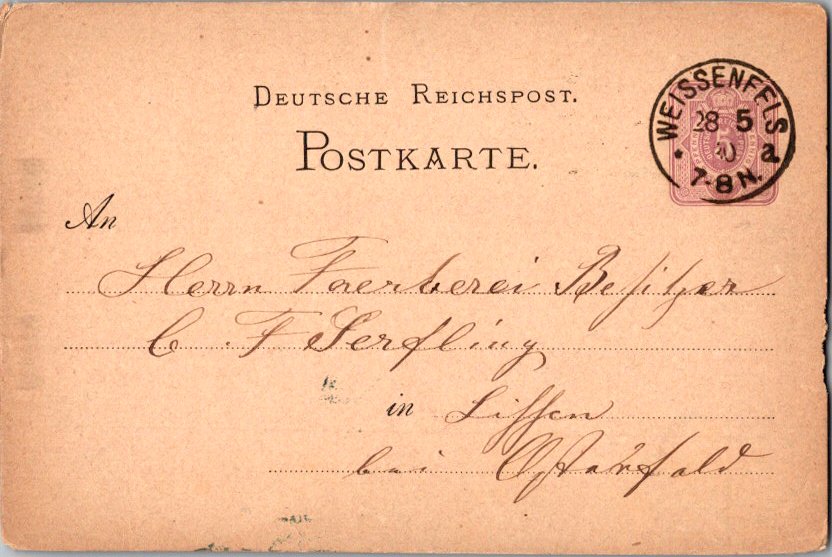 DEUTSCHE REICHSPOST.
POSTKARTE.
WEISSENFELS
28 5
a
7-8 N.
An
Herrn Faerberei Besitzer
C F Serfling
in Lissen
bei Osterfeld